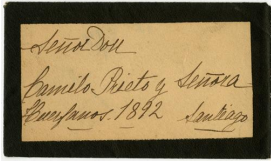 Señor Don
Camilo Prieto y Señora
Huerfanos. 1892 Santiago